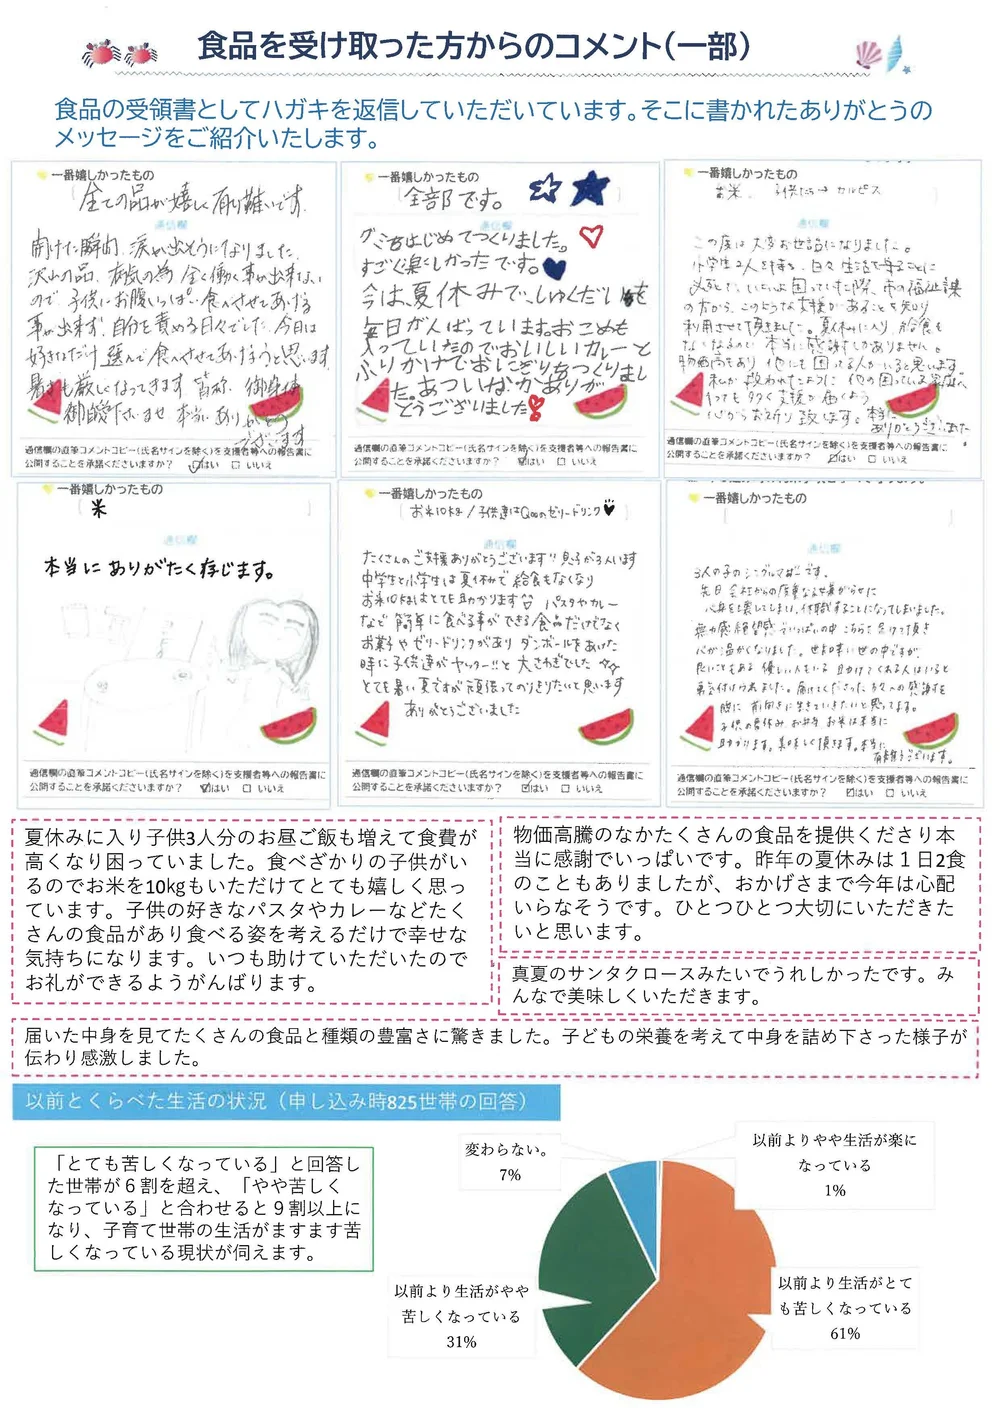 食品を受け取った方からのコメント(一部)
食品の受領書としてハガキを返信していただいています。そこに書かれたありがとうの
メッセージをご紹介いたします。
一番嬉しかったもの
全ての品が嬉しく有り難いです。
通信欄
開けた瞬間、涙が出そうになりました。
沢山の品、病気の為 全く働く事が出来ない
ので、子供にお腹いっぱい食べさせてあげる
事が出来ず、自分を責める日々でした。今日は
好きなだけ選んで食べさせてあげようと思います。
暑さも厳しくなってきます 皆様、御身体
御自愛下さいませ 本当にありがとう
ございます
通信欄の直筆コメントコピー(氏名サインを除く)を支援者等への報告書に
公開することを承諾くださいますか? ☑はい □ いいえ
一番嬉しかったもの
全部です。
グミをはじめてつくりました。
すごく楽しかったです。
今は、夏休みで、しゅくだいを
毎日がんばっています。おこめも
入っていたのでおいしいカレーと
ふりかけでおにぎりをつくりまし
た。あついなかありが
とうございました
通信欄の直筆コメントコピー(氏名サインを除く)を支援者等への報告書に
公開することを承諾くださいますか? ☑はい □ いいえ
一番嬉しかったもの
お米、 子供たち→ カルピス
通信欄
この度は大変お世話になりました。
小学生2人を持ち、日々生活を守ることに
必死で、いよいよ困っていた際、市の福祉課
の方から、このような支援があることを知り
利用させて頂きました。夏休みに入り、給食も
なくなるのに 本当に感謝しかありません。
物価高もあり 他にも困ってる人がいると思います。
私が救われたように 他の困っている家庭へ
1つでも多く支援が届くよう
心からお祈り致します。本当に
ありがとうございました
通信欄の直筆コメントコピー(氏名サインを除く)を支援者等への報告書に
公開することを承諾くださいますか? ☑はい □ いいえ
一番嬉しかったもの
米
通信欄
本当に ありがたく存じます。
通信欄の直筆コメントコピー(氏名サインを除く)を支援者等への報告書に
公開することを承諾くださいますか? ☑はい □ いいえ
一番嬉しかったもの
お米10kg / 子供達はQooのゼリードリンク
通信欄
たくさんのご支援ありがとうございます!! 息子が3人います
中学生と小学生は夏休みで給食もなくなり
お米10kgはとても助かります パスタやカレー
など 簡単に食べる事ができる食品だけでなく
お菓子やゼリードリンクがあり ダンボールをあけた
時に子供達がヤッター!!と 大さわぎでした
とても暑い夏ですが頑張ってのりきりたいと思います
ありがとうございました
通信欄の直筆コメントコピー(氏名サインを除く)を支援者等への報告書に
公開することを承諾くださいますか? ☑はい □ いいえ
一番嬉しかったもの
通信欄
3人の子のシングルマザーです。
先日 会社からの度重なる仕業がらせに
心身を壊してしまい、休職することになってしまいました。
無力感、絶望感でいっぱいの中 こちらを受けて頂き
心が温かくなりました。世知辛い世の中ですが、
良いこともある 優しい人もいる 助けてくれる人はいると
勇気付けられました。届けてくださった方々への感謝を
胸に 前向きに生きていきたいと思ってます。
子供の春休み お弁当 お米は本当に
助かります。美味しく頂きます。本当に
有難うございます。
通信欄の直筆コメントコピー(氏名サインを除く)を支援者等への報告書に
公開することを承諾くださいますか? ☑はい □ いいえ
夏休みに入り子供3人分のお昼ご飯も増えて食費が
高くなり困っていました。食べざかりの子供がい
るのでお米を10㎏もいただけてとても嬉しく思っ
ています。子供の好きなパスタやカレーなどたく
さんの食品があり食べる姿を考えるだけで幸せな
気持ちになります。いつも助けていただいたので
お礼ができるようがんばります。
物価高騰のなかたくさんの食品を提供くださり本
当に感謝でいっぱいです。昨年の夏休みは1日2食
のこともありましたが、おかげさまで今年は心配
いらなそうです。ひとつひとつ大切にいただきた
いと思います。
真夏のサンタクロースみたいでうれしかったです。み
んなで美味しくいただきます。
届いた中身を見てたくさんの食品と種類の豊富さに驚きました。子どもの栄養を考えて中身を詰め下さった様子が
伝わり感激しました。
以前とくらべた生活の状況(申し込み時825世帯の回答)
「とても苦しくなっている」と回答し
た世帯が6割を超え、「やや苦しく
なっている」と合わせると9割以上に
なり、子育て世帯の生活がますます苦
しくなっている現状が伺えます。
変わらない。
7%
以前よりやや生活が楽に
なっている
1%
以前より生活がやや
苦しくなっている
31%
以前より生活がとて
も苦しくなっている
61%